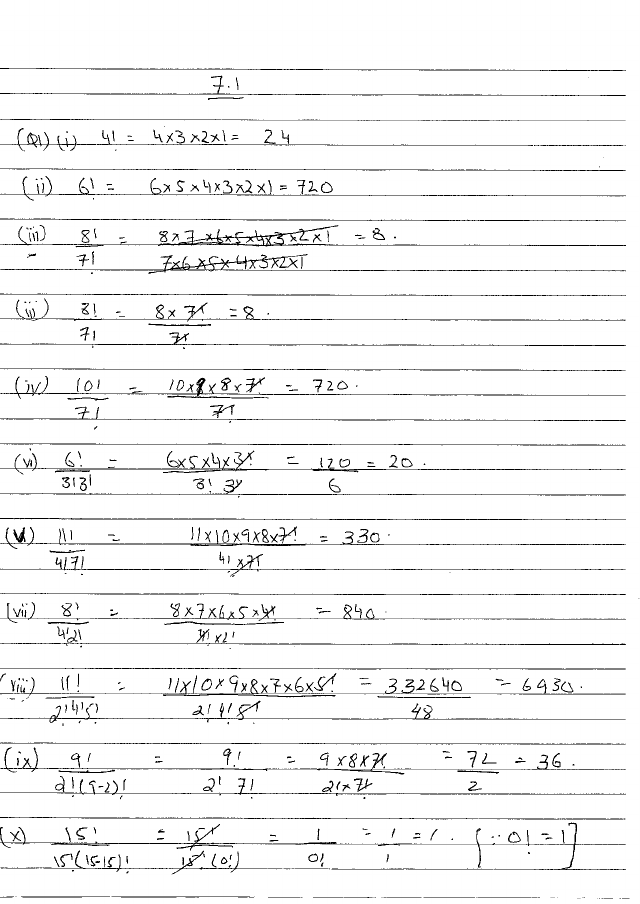 7.1
(Q1) (i) 4! = 4×3×2×1 = 24
(ii) 6! = 6×5×4×3×2×1 = 720
(iii) 8!/7! = 8×7×6×5×4×3×2×1 / 7×6×5×4×3×2×1 = 8.
(iii) 8!/7! = 8×7!/7! = 8.
(iv) 10!/7! = 10×9×8×7!/7! = 720.
(vi) 6!/3!3! = 6×5×4×3!/3! 3! = 120/6 = 20.
(v) 11!/4!7! = 11×10×9×8×7!/4!×7! = 330.
(vii) 8!/4!2! = 8×7×6×5×4!/4!×2! = 840.
(viii) 11!/2!4!5! = 11×10×9×8×7×6×5!/2!4!5! = 332640/48 = 6930.
(ix) 9!/2!(9-2)! = 9!/2! 7! = 9×8×7!/2!×7! = 72/2 = 36.
(x) 15!/15!(15-15)! = 15!/15!(0!) = 1/0! = 1/1 = 1. {∵ 0! = 1]